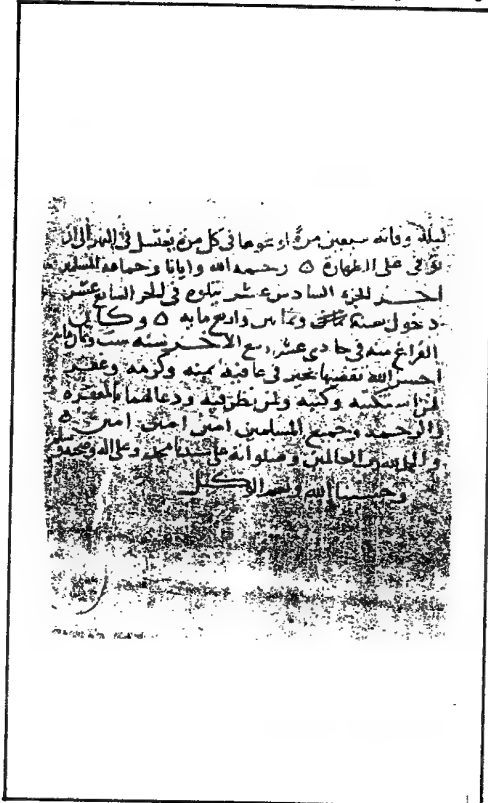 ليلة وفاته سبعين مرة او نحوها في كل مرة يغتسل في النهر الى ان
توفي على الطهارة ٥ رحمه الله وايانا وجماعه المسلمين
اخر الجزء السادس عشر يتلوه في الجزء السابع عشر
دخول سنة وثمانين واربع مايه ٥ وكان
الفراغ منه في حادي عشر ربيع الاخر سنه ست
احسن الله تقضيها بخير في عافية بمنه وكرمه وغفر
لمن استكتبه وكتبه ولمن نظر فيه ودعا لهما بالمغفرة
والرحمة وجميع المسلمين امين امين امين ٥
والحمد لله رب العالمين وصلواته على سيدنا محمد وعلى اله وصحبه وسلم
وحسبنا الله ونعم الوكيل